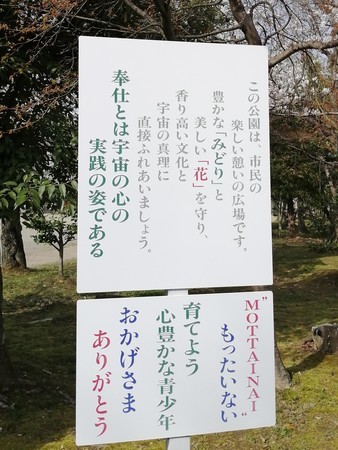 この公園は、市民の
楽しい憩いの広場です。
豊かな「みどり」と
美しい「花」を守り、
香り高い文化と
宇宙の真理に
直接ふれあいましょう。
奉仕とは宇宙の心の
実践の姿である
"MOTTAINAI
もったいない"
育てよう
心豊かな青少年
おかげさま
ありがとう